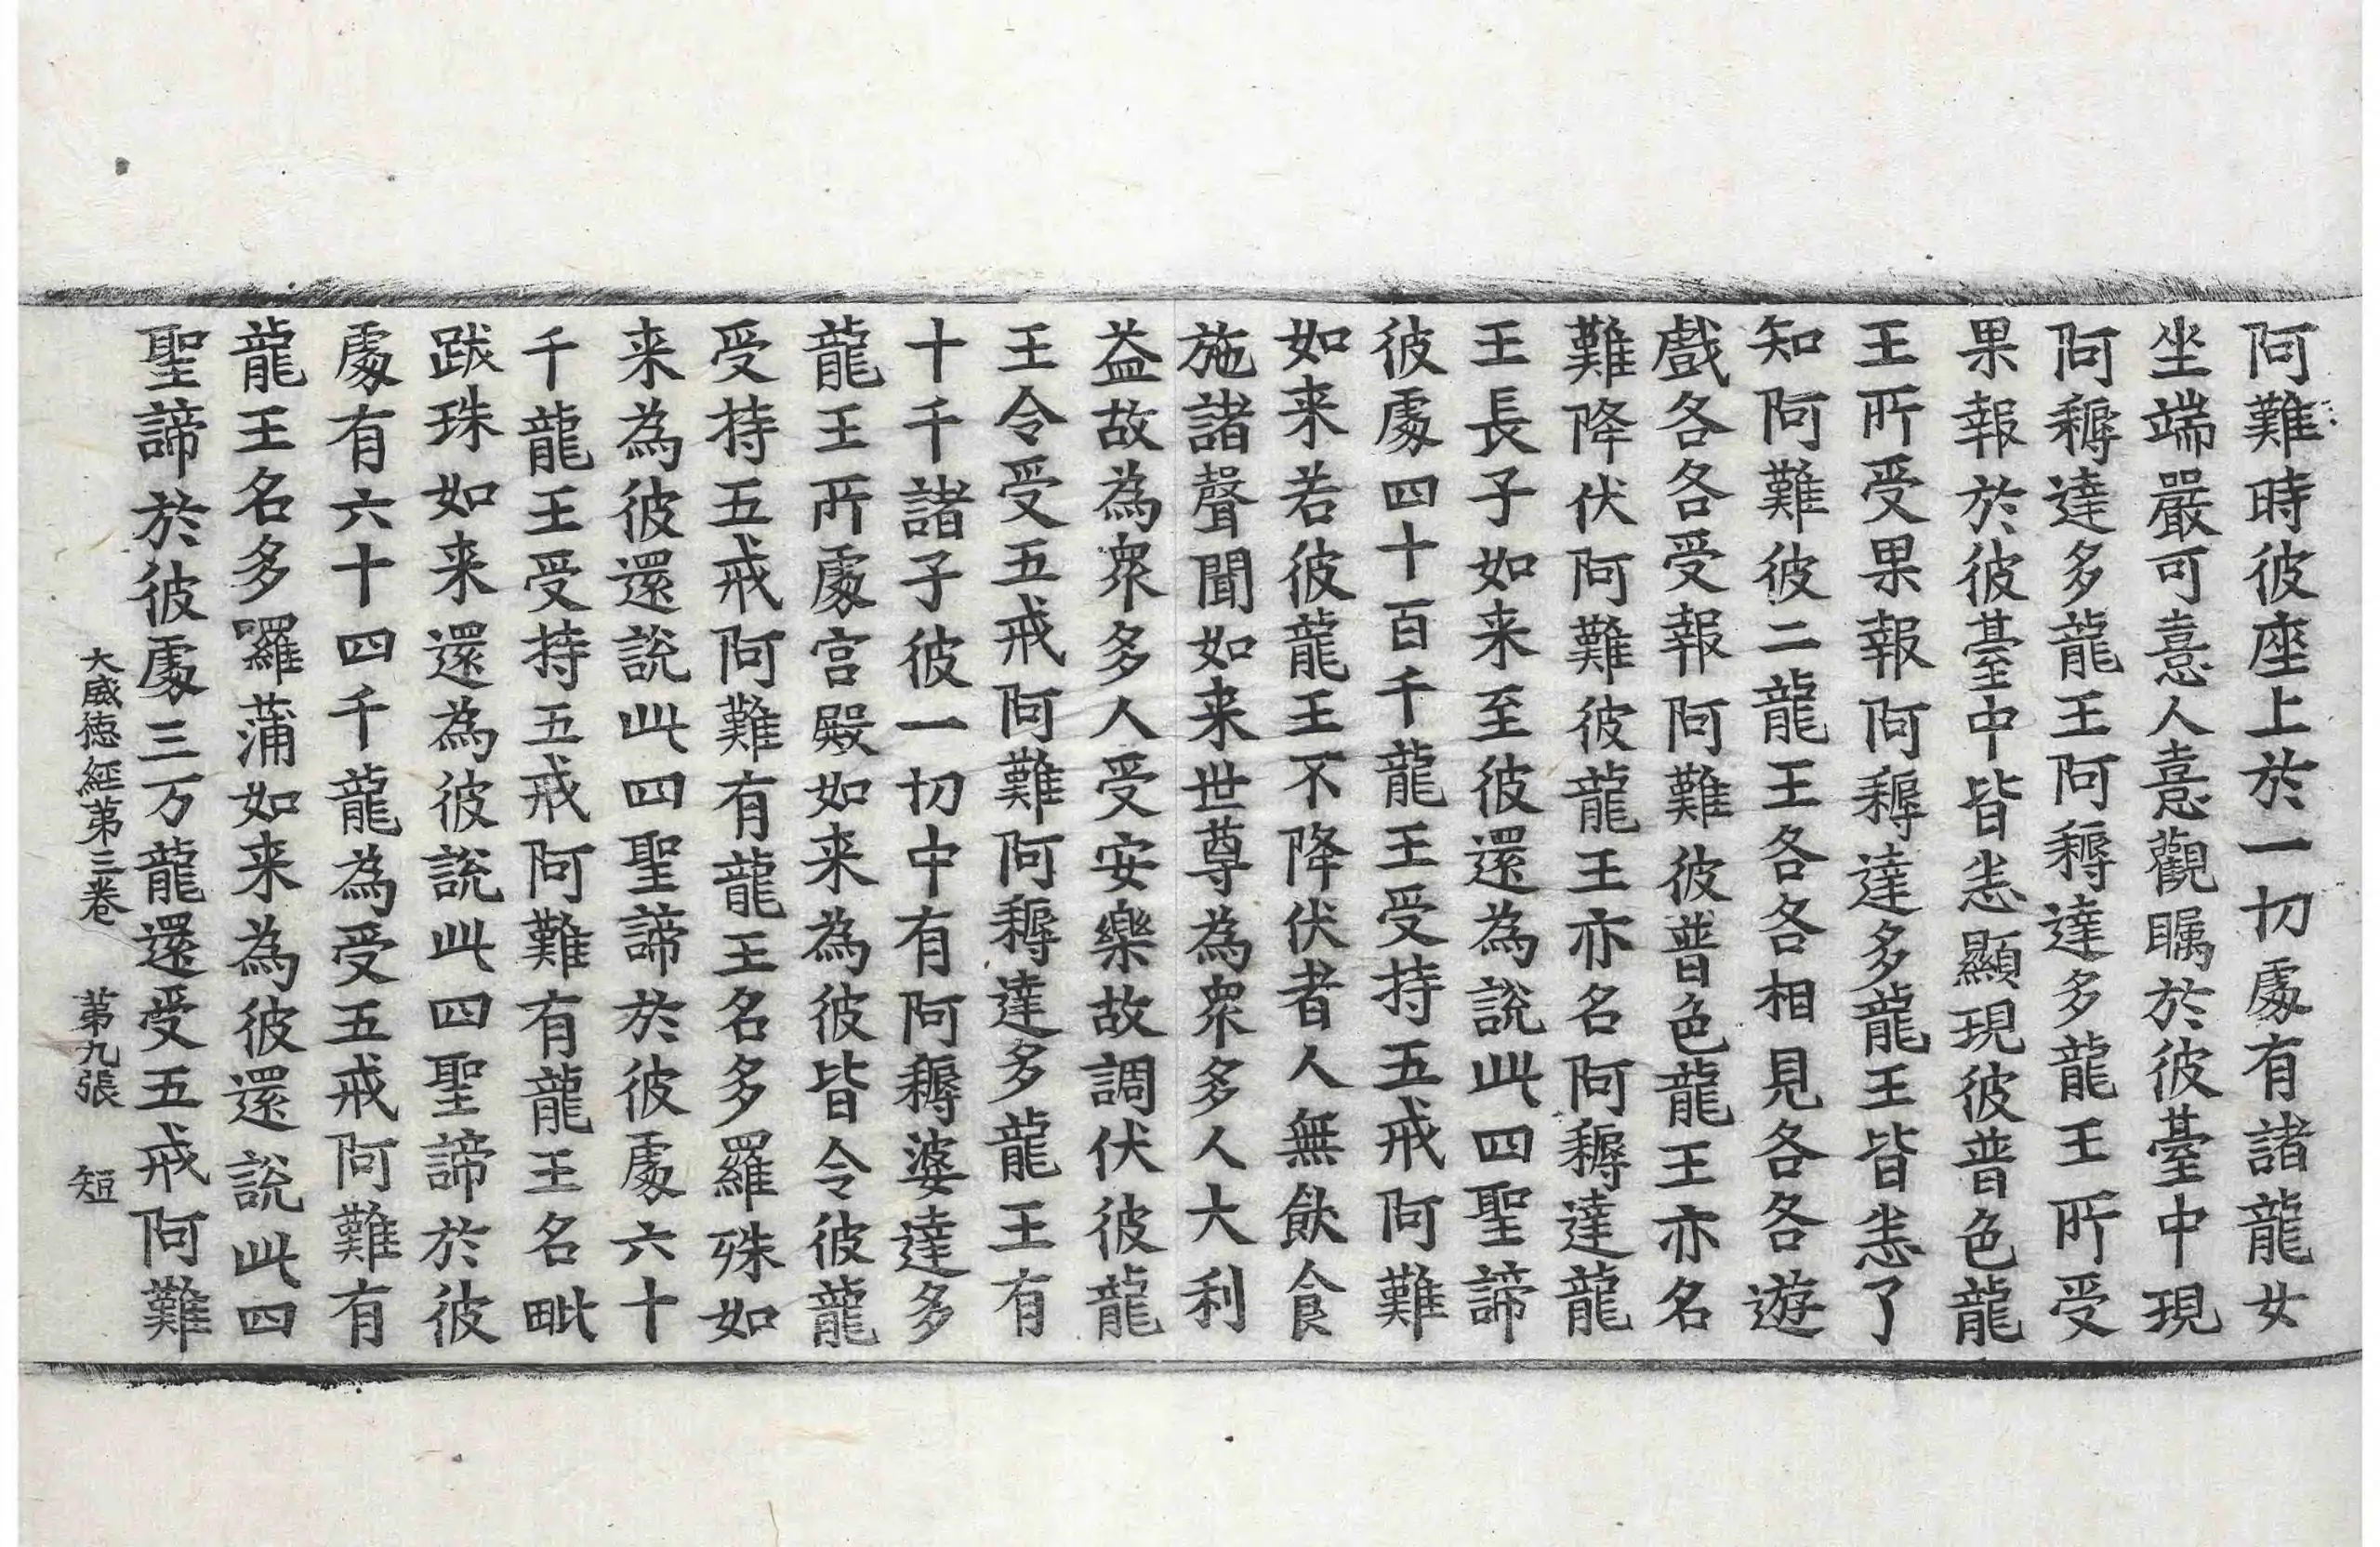 阿難時彼座上於一切處有諸龍女
坐端嚴可憙人憙觀矚於彼臺中現
阿耨達多龍王阿耨達多龍王所受
果報於彼臺中皆悉顯現彼普色龍
王所受果報阿耨達多龍王皆悉了
知阿難彼二龍王各各相見各各遊
戲各各受報阿難彼普色龍王亦名
難降伏阿難彼龍王亦名阿耨達龍
王長子如来至彼還為說此四聖諦
彼處四十百千龍王受持五戒阿難
如来若彼龍王不降伏者人無飲食
施諸聲聞如来世尊為衆多人大利
益故為衆多人受安樂故調伏彼龍
王令受五戒阿難阿耨達多龍王有
十千諸子彼一切中有阿耨婆達多
龍王所處宮殿如来為彼皆令彼龍
受持五戒阿難有龍王名多羅殊如
来為彼還說此四聖諦於彼處六十
千龍王受持五戒阿難有龍王名毗
跋珠如来還為彼說此四聖諦於彼
處有六十四千龍為受五戒阿難有
龍王名多囉蒲如来為彼還說此四
聖諦於彼處三万龍還受五戒阿難
大威徳經第三卷 第九張 短